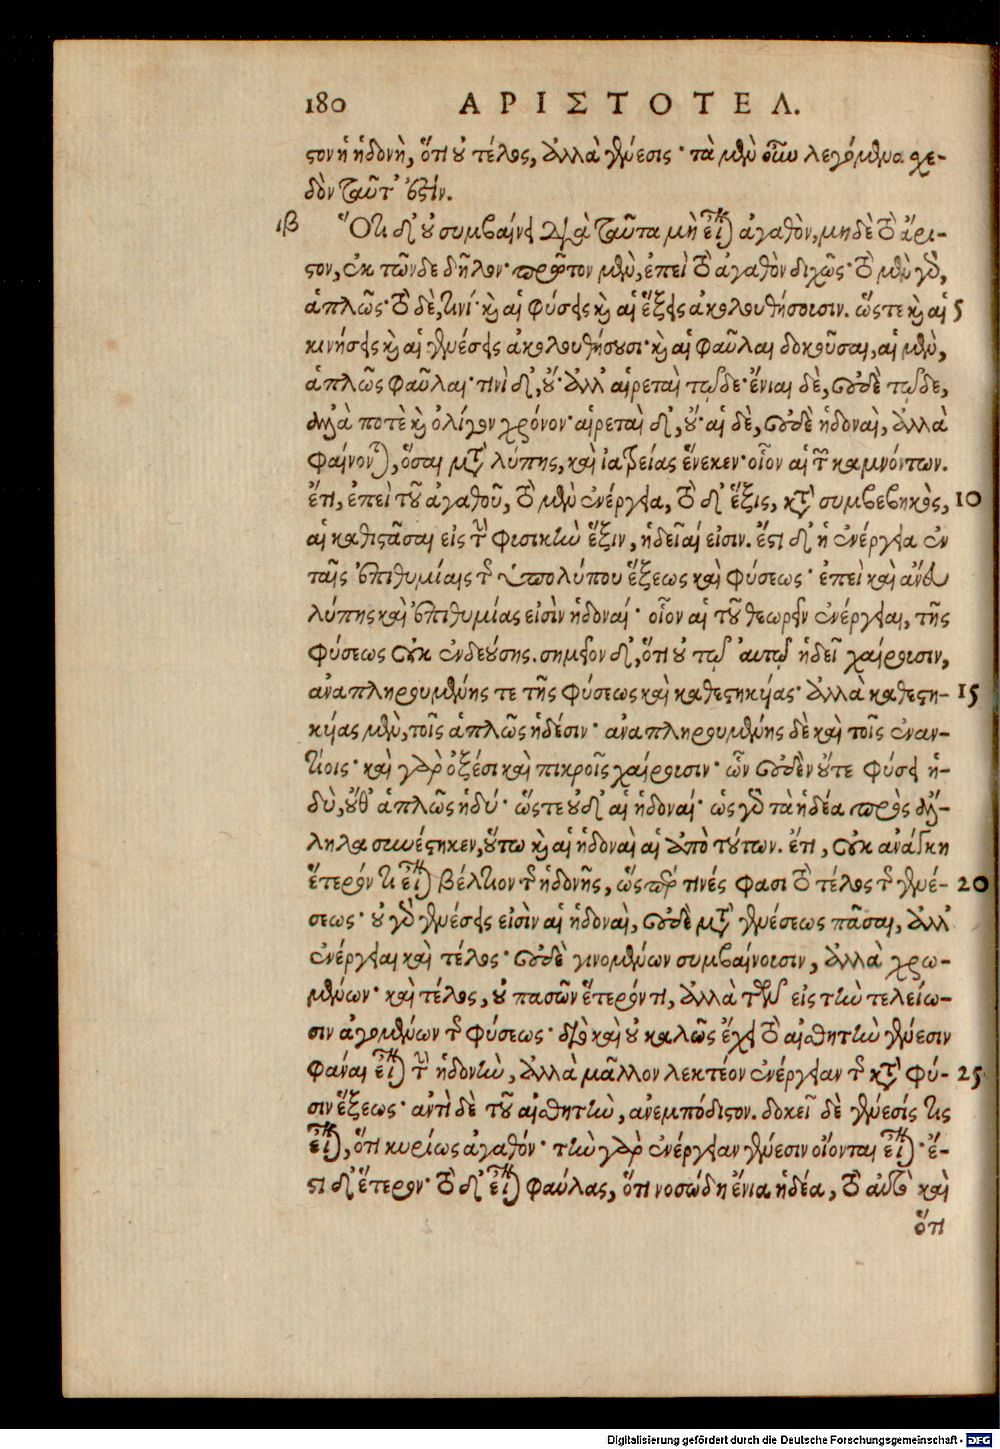 180 ΑΡΙΣΤΟΤΕΛ.
στον ἡ ἡδονὴ, ὅτι οὐ τέλος, ἀλλὰ γένεσις· τὰ μὲν οὖν λεγόμενα σχε-
δὸν ταῦτ' ἐστίν.
ιβ Ὅτι δ' οὐ συμβαίνει διὰ ταῦτα μὴ εἶναι ἀγαθὸν, μηδὲ τὸ ἄρι-
στον, ἐκ τῶνδε δῆλον· πρῶτον μὲν, ἐπεὶ τὸ ἀγαθὸν διχῶς· τὸ μὲν γὰρ,
ἁπλῶς· τὸ δὲ, τινί· καὶ αἱ φύσεις καὶ αἱ ἕξεις ἀκολουθήσουσιν. ὥστε καὶ αἱ 5
κινήσεις καὶ αἱ γενέσεις ἀκολουθήσουσι· καὶ αἱ φαῦλαι δοκοῦσαι, αἱ μὲν,
ἁπλῶς φαῦλαι· τινὶ δ', οὔ· ἀλλ' αἱρεταὶ τῷδε· ἔνιαι δὲ, οὐδὲ τῷδε,
ἀλλὰ ποτὲ καὶ ὀλίγον χρόνον· αἱρεταὶ δ', οὔ· αἱ δὲ, οὐδὲ ἡδοναὶ, ἀλλὰ
φαίνονται, ὅσαι μετὰ λύπης, καὶ ἰατρείας ἕνεκεν· οἷον αἱ τῶν καμνόντων.
ἔτι, ἐπεὶ τοῦ ἀγαθοῦ, τὸ μὲν ἐνέργεια, τὸ δ' ἕξις, κατὰ συμβεβηκὸς, 10
αἱ καθιστᾶσαι εἰς τὴν φισικὴν ἕξιν, ἡδεῖαί εἰσιν. ἔστι δ' ἡ ἐνέργεια ἐν
ταῖς ἐπιθυμίαις τῆς ὑπολύπου ἕξεως καὶ φύσεως· ἐπεὶ καὶ ἄνευ
λύπης καὶ ἐπιθυμίας εἰσὶν ἡδοναί· οἷον αἱ τοῦ θεωρεῖν ἐνέργειαι, τῆς
φύσεως οὐκ ἐνδεούσης. σημεῖον δ', ὅτι οὐ τῷ αὐτῷ ἡδεῖ χαίρουσιν,
ἀναπληρουμένης τε τῆς φύσεως καὶ καθεστηκυίας· ἀλλὰ καθεστη- 15
κυίας μὲν, τοῖς ἁπλῶς ἡδέσιν· ἀναπληρουμένης δὲ καὶ τοῖς ἐναν-
τίοις· καὶ γὰρ ὀξέσι καὶ πικροῖς χαίρουσιν· ὧν οὐδὲν οὔτε φύσει ἡ-
δὺ, οὔθ' ἁπλῶς ἡδύ· ὥστε οὐδ' αἱ ἡδοναί· ὡς γὰρ τὰ ἡδέα πρὸς ἄλ-
ληλα συνέστηκεν, οὕτω καὶ αἱ ἡδοναὶ αἱ ἀπὸ τούτων. ἔτι, οὐκ ἀνάγκη
ἕτερόν τι εἶναι βέλτιον τῆς ἡδονῆς, ὥσπερ τινές φασι τὸ τέλος τῆς γενέ- 20
σεως· οὐ γὰρ γενέσεις εἰσὶν αἱ ἡδοναὶ, οὐδὲ μετὰ γενέσεως πᾶσαι, ἀλλ'
ἐνέργειαι καὶ τέλος· οὐδὲ γινομένων συμβαίνουσιν, ἀλλὰ χρω-
μένων· καὶ τέλος, οὐ πασῶν ἕτερόν τι, ἀλλὰ τῶν εἰς τὴν τελείω-
σιν ἀγομένων τῆς φύσεως· διὸ καὶ οὐ καλῶς ἔχει τὸ αἰσθητὴν γένεσιν
φάναι εἶναι τὴν ἡδονὴν, ἀλλὰ μᾶλλον λεκτέον ἐνέργειαν τῆς κατὰ φύ- 25
σιν ἕξεως· ἀντὶ δὲ τοῦ αἰσθητὴν, ἀνεμπόδιστον. δοκεῖ δὲ γένεσίς τις
εἶναι, ὅτι κυρίως ἀγαθόν· τὴν γὰρ ἐνέργειαν γένεσιν οἴονται εἶναι· ἔ-
στι δ' ἕτερον· τὸ δ' εἶναι φαύλας, ὅτι νοσώδη ἔνια ἡδέα, τὸ αὐτὸ καὶ
ὅτι
Digitalisierung gefördert durch die Deutsche Forschungsgemeinschaft - DFG